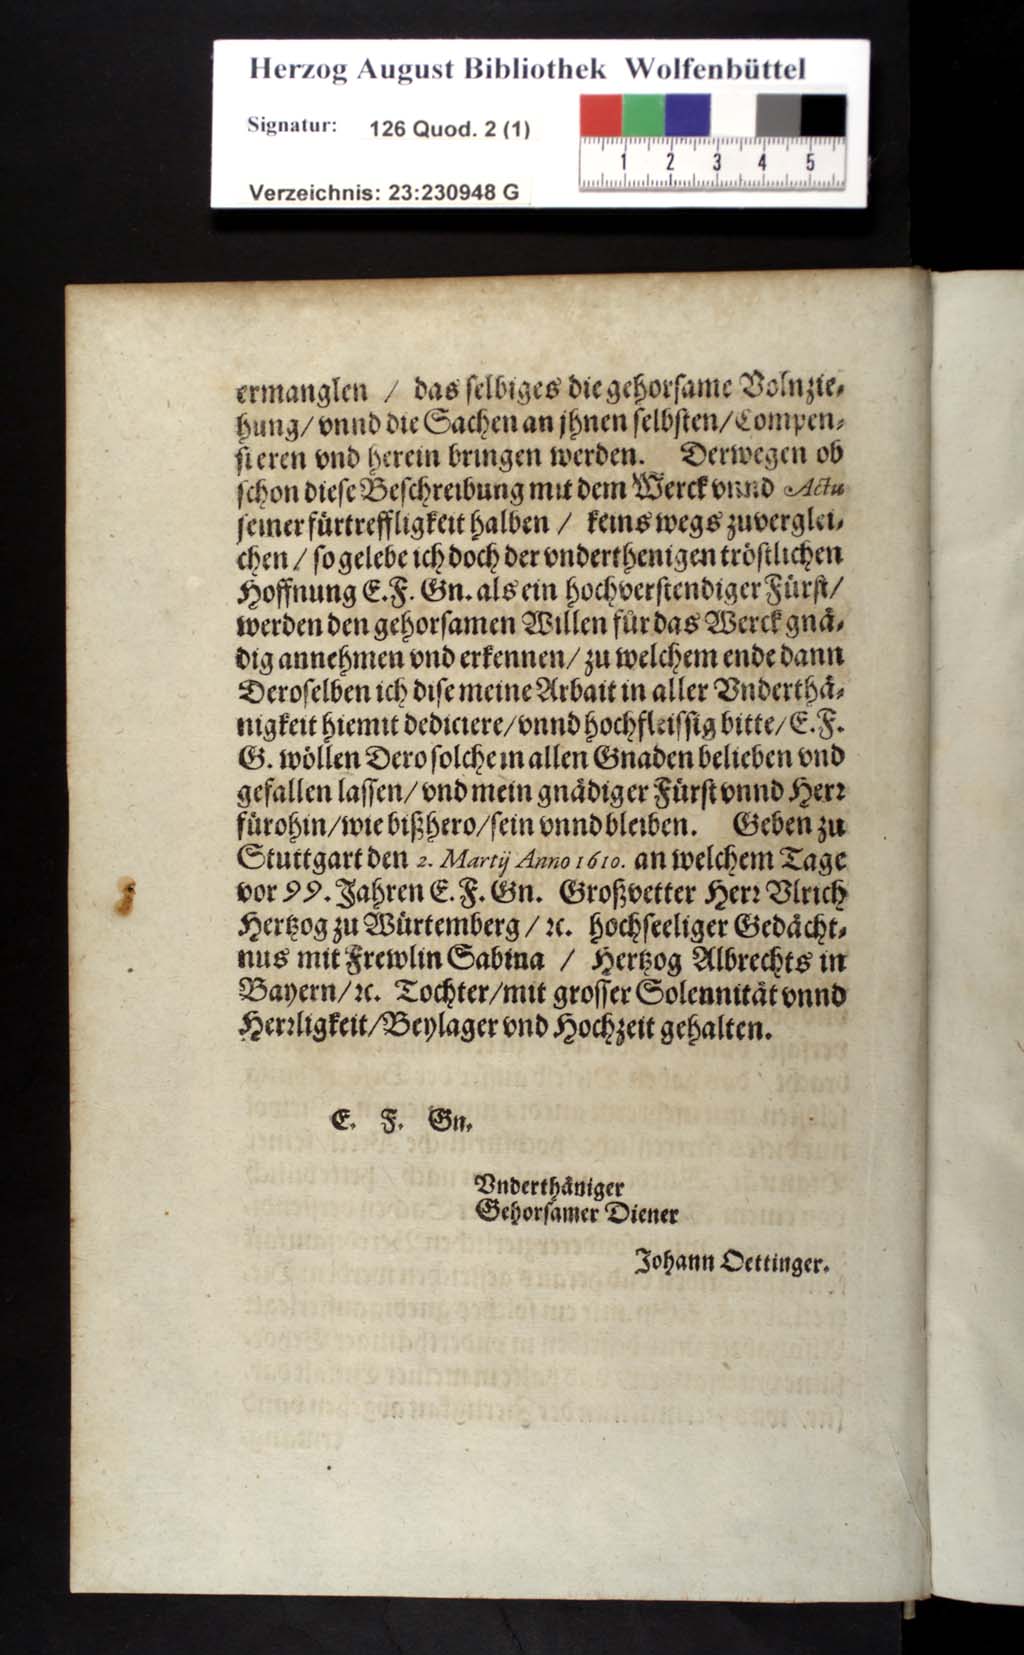 Herzog August Bibliothek Wolfenbüttel
Signatur: 126 Quod. 2 (1)
1 2 3 4 5
Verzeichnis: 23:230948 G
ermanglen / das selbiges die gehorsame Volnzie-
hung/ vnnd die Sachen an jhnen selbsten/ Compen-
sieren vnd herein bringen werden. Derwegen ob
schon diese Beschreibung mit dem Werck vnnd Actu
seiner fürtreffligkeit halben / keins wegs zuverglei-
chen / so gelebe ich doch der vnderthenigen tröstlichen
Hoffnung E. F. Gn. als ein hochverstendiger Fürst/
werden den gehorsamen Willen für das Werck gnä-
dig annehmen vnd erkennen/ zu welchem ende dann
Deroselben ich dise meine Arbait in aller Vnderthä-
nigkeit hiemit dediciere/ vnnd hochfleissig bitte/ E. F.
G. wöllen Dero solche in allen Gnaden belieben vnd
gefallen lassen/ vnd mein gnädiger Fürst vnnd Herr
fürohin/ wie bißhero/ sein vnnd bleiben. Geben zu
Stuttgart den 2. Martij Anno 1610. an welchem Tage
vor 99. Jahren E. F. Gn. Großvetter Herr Vlrich
Hertzog zu Würtemberg / ꝛc. hochseeliger Gedächt-
nus mit Frewlin Sabina / Hertzog Albrechts in
Bayern/ ꝛc. Tochter/ mit grosser Solennität vnnd
Herrligkeit/ Beylager vnd Hochzeit gehalten.
E. F. Gn.
Vnderthäniger
Gehorsamer Diener
Johann Oettinger.